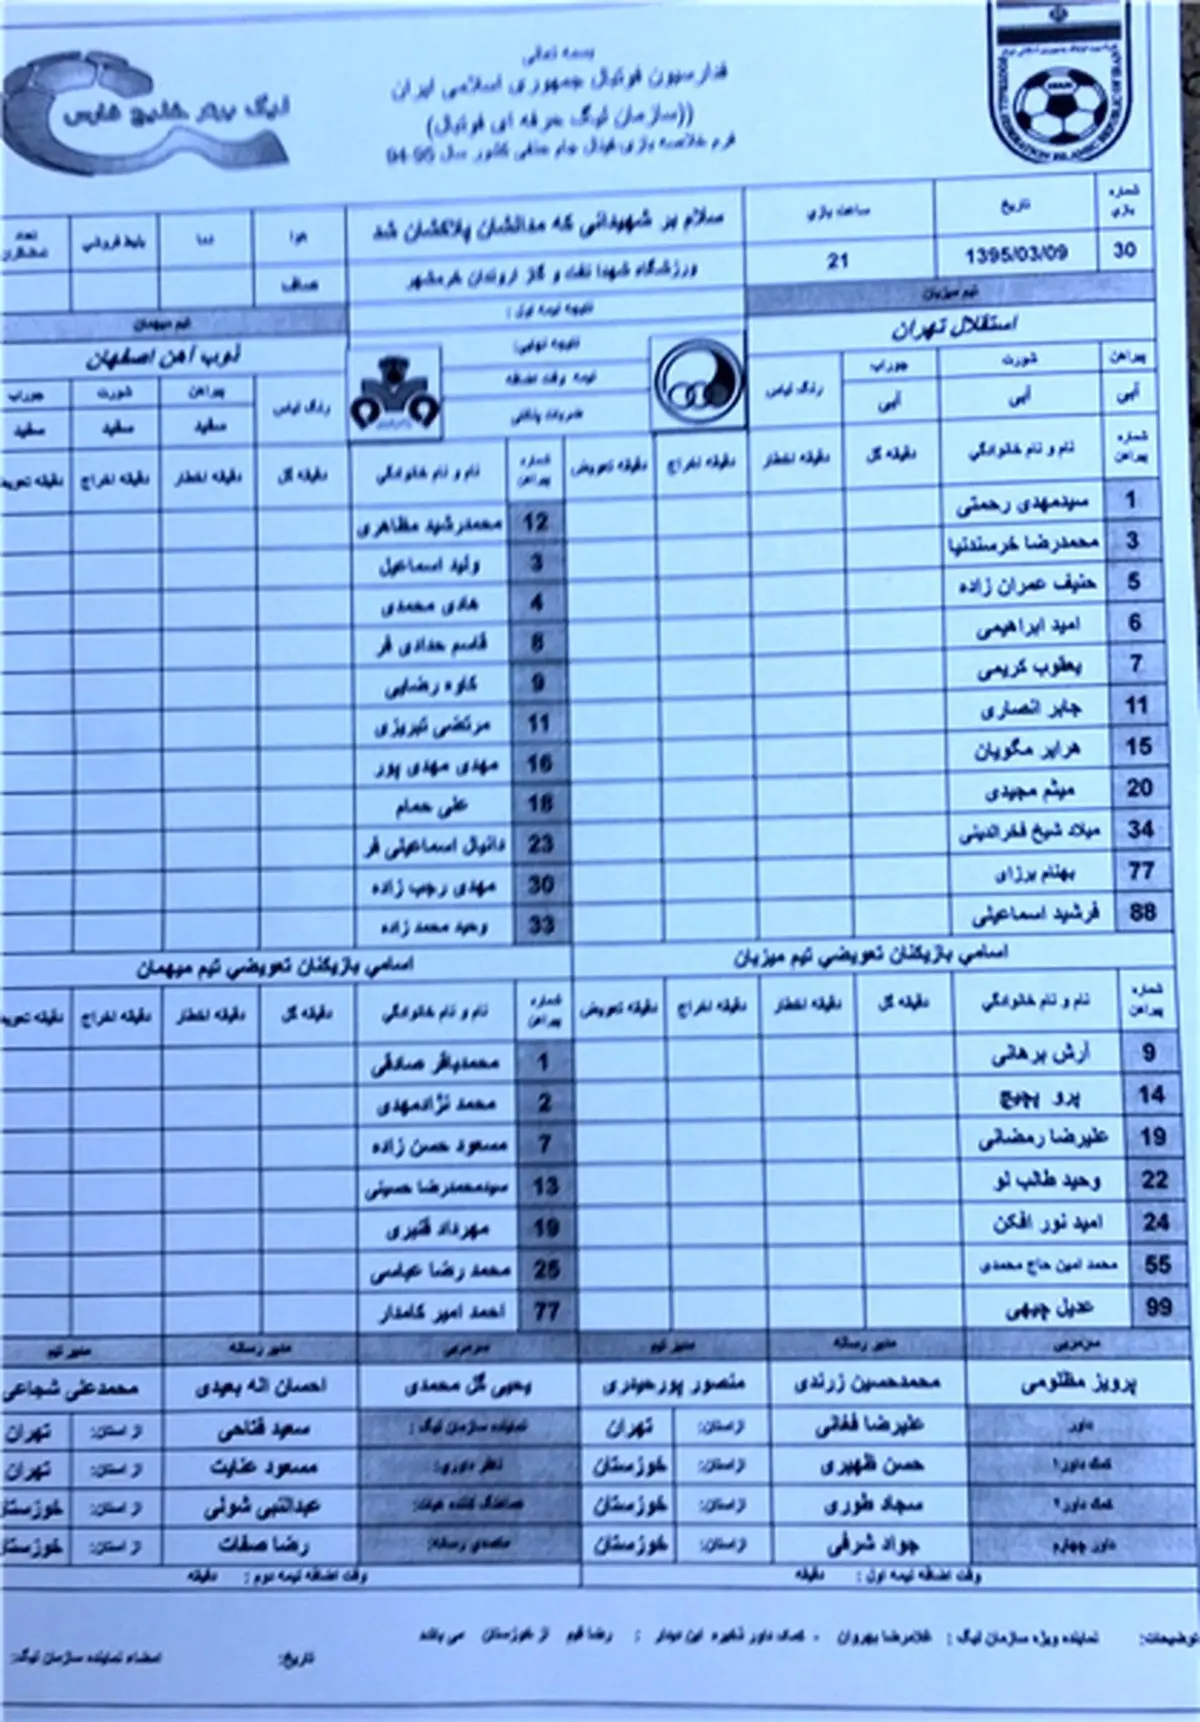 بسمه تعالی
فدراسیون فوتبال جمهوری اسلامی ایران
((سازمان لیگ حرفه ای فوتبال)
فرم خلاصه بازی فینال جام حذفی کشور سال 95-94
لیگ برتر خلیج فارس
شماره بازی تاریخ ساعت بازی سلام بر شهیدانی که مدالشان پلاکشان شد هوا دما بلیط فروشی تعداد تماشاگران
30 1395/03/09 21 ورزشگاه شهدا نفت و گاز اروندان خرمشهر صاف
تیم میزبان نتیجه نیمه اول : تیم میهمان
استقلال تهران نتیجه نهایی: ذوب آهن اصفهان
پیراهن شورت جوراب رنگ لباس نیمه وقت اضافه رنگ لباس پیراهن شورت جوراب
آبی آبی آبی ضربات پنالتی سفید سفید سفید
شماره پیراهن نام و نام خانوادگی دقیقه گل دقیقه اخطار دقیقه اخراج دقیقه تعویض شماره پیراهن نام و نام خانوادگی دقیقه گل دقیقه اخطار دقیقه اخراج دقیقه تعویض
1 سیدمهدی رحمتی 12 محمدرشید مظاهری
3 محمدرضا خرسندنیا 3 ولید اسماعیل
5 حنیف عمران زاده 4 هادی محمدی
6 امید ابراهیمی 8 قاسم حدادی فر
7 یعقوب کریمی 9 کاوه رضایی
11 جابر انصاری 11 مرتضی تبریزی
15 هرایر مگویان 16 مهدی مهدی پور
20 میثم مجیدی 18 علی حمام
34 میلاد شیخ فخرالدینی 23 دانیال اسماعیلی فر
77 بهنام برزای 30 مهدی رجب زاده
88 فرشید اسماعیلی 33 وحید محمد زاده
اسامی بازیکنان تعویضی تیم میزبان اسامی بازیکنان تعویضی تیم میهمان
شماره پیراهن نام و نام خانوادگی دقیقه گل دقیقه اخطار دقیقه اخراج دقیقه تعویض شماره پیراهن نام و نام خانوادگی دقیقه گل دقیقه اخطار دقیقه اخراج دقیقه تعویض
9 آرش برهانی 1 محمدباقر صادقی
14 پرو پجیچ 2 محمد نژادمهدی
19 علیرضا رمضانی 7 مسعود حسن زاده
22 وحید طالب لو 13 سیدمحمدرضا حسینی
24 امید نور افکن 19 مهرداد قنبری
55 محمد امین حاج محمدی 25 محمد رضا عباسی
99 عدیل چیهی 77 احمد امیر کامدار
سرمربی مدیر رسانه مدیر تیم سرمربی مدیر رسانه مدیر تیم
پرویز مظلومی محمدحسین زرندی منصور پورحیدری یحیی گل محمدی احسان اله بعیدی محمدعلی شجاعی
داور علیرضا فغانی از استان: تهران نماینده سازمان لیگ : سعید فتاحی از استان: تهران
کمک داور۱ حسن ظهیری از استان: خوزستان ناظر داوری: مسعود عنایت از استان: تهران
کمک داور۲ سجاد طوری از استان: خوزستان هماهنگ کننده هیات: عبدالنبی شولی از استان: خوزستان
داور چهارم جواد شرفی از استان: خوزستان متصدی رسانه: رضا صفات از استان: خوزستان
وقت اضافه نیمه اول : دقیقه وقت اضافه نیمه دوم : دقیقه
توضیحات: نماینده ویژه سازمان لیگ : غلامرضا بهروان - کمک داور ذخیره این دیدار : رضا قیم از خوزستان می باشد
تاریخ: امضاء نماینده سازمان لیگ: